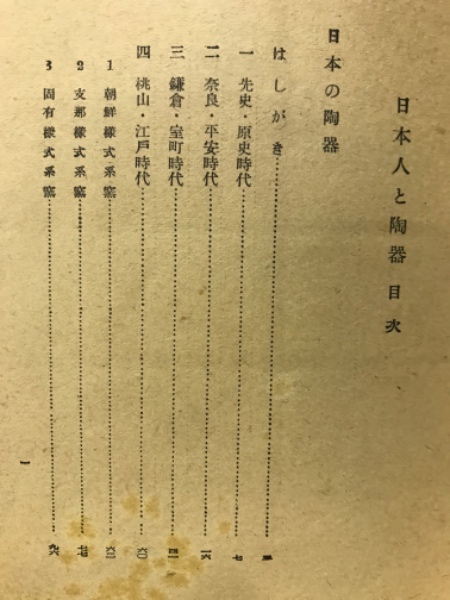 日本人と陶器 目次
日本の陶器
はしがき
一 先史・原史時代 七
二 奈良・平安時代 一六
三 鎌倉・室町時代
四 桃山・江戸時代 六〇
1 朝鮮様式系窯 六二
2 支那様式系窯 七七
3 固有様式系窯 九六
一